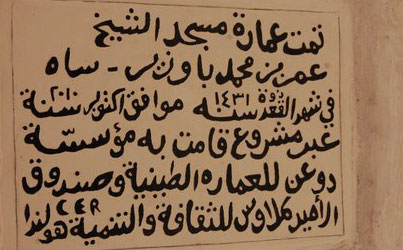 تمت عمارة مسجد الشيخ
عمر بن محمد باوزير - ساه
في شهر القعدة سنه ١٤٣١ موافق اكتوبر سنة ٢٠١٠
عبر مشروع قامت به مؤسسة
دوعن للعماره الطينية وصندوق
الأمير كلاوس للثقافة والتنمية هولندا CER